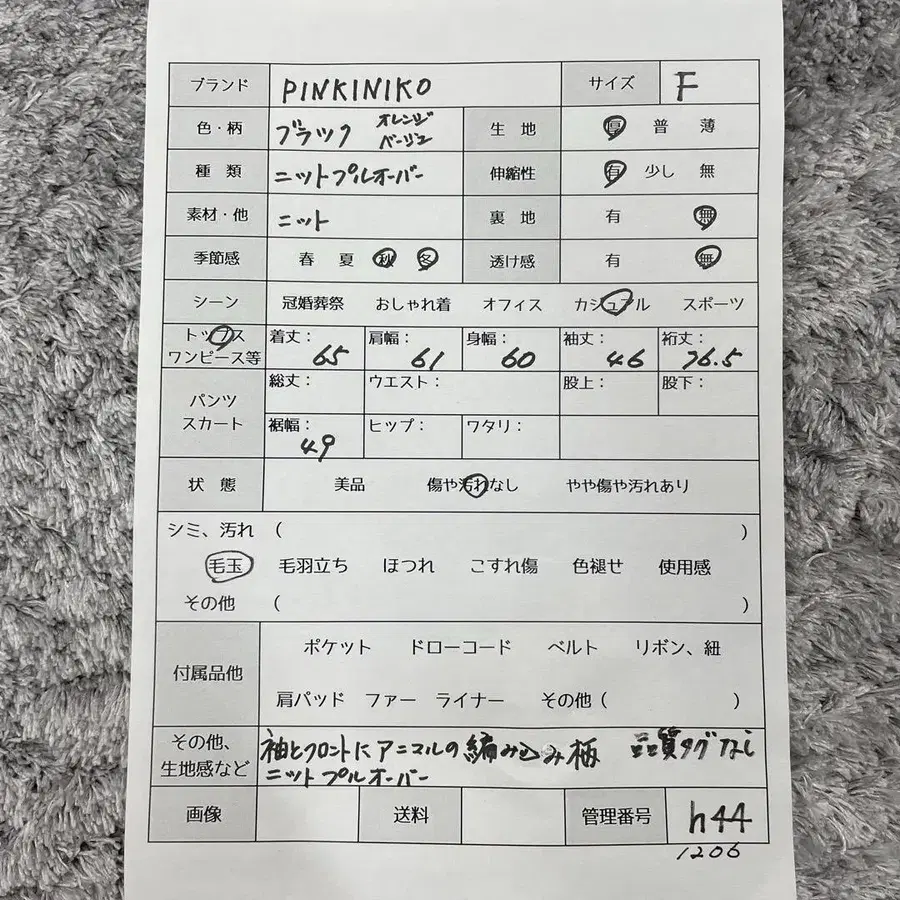 ブランド PINKINIKO サイズ F
色・柄 ブラック オレンジ ベージュ 生地 厚 普 薄
種類 ニットプルオーバー 伸縮性 有 少し 無
素材・他 ニット 裏地 有 無
季節感 春 夏 秋 冬 透け感 有 無
シーン 冠婚葬祭 おしゃれ着 オフィス カジュアル スポーツ
トップス ワンピース等 着丈：65 肩幅：61 身幅：60 袖丈：46 裄丈：76.5
パンツ スカート 総丈： ウエスト： 股上： 股下：
裾幅：49 ヒップ： ワタリ：
状態 美品 傷や汚れなし やや傷や汚れあり
シミ、汚れ （ ）
毛玉 毛羽立ち ほつれ こすれ傷 色褪せ 使用感
その他 （ ）
付属品他 ポケット ドローコード ベルト リボン、紐
肩パッド ファー ライナー その他（ ）
その他、 袖とフロントにアニマルの編み込み柄 品質タグなし
生地感など ニットプルオーバー
画像 送料 管理番号 h44
1206